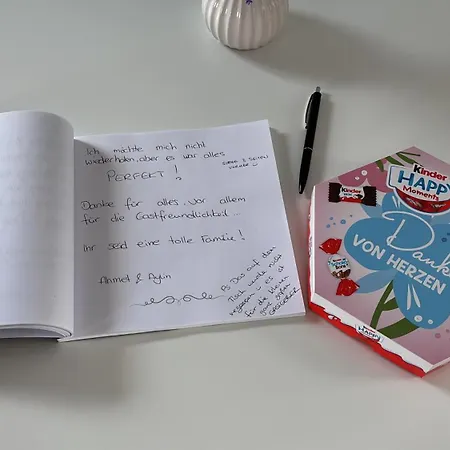 Ich möchte mich nicht
wiederholen, aber es war alles
PERFEKT !
Danke für alles, vor allem
für die Gastfreundlichkeit...
Ihr seid eine tolle Familie!
Ahmet & Aylin
PS: Das auf dem
Tisch wurde nicht
vergessen
es ist
für die kleinen
kinder
HAPPY
Moments
Danke
VON HERZEN
kinder
HAPPY